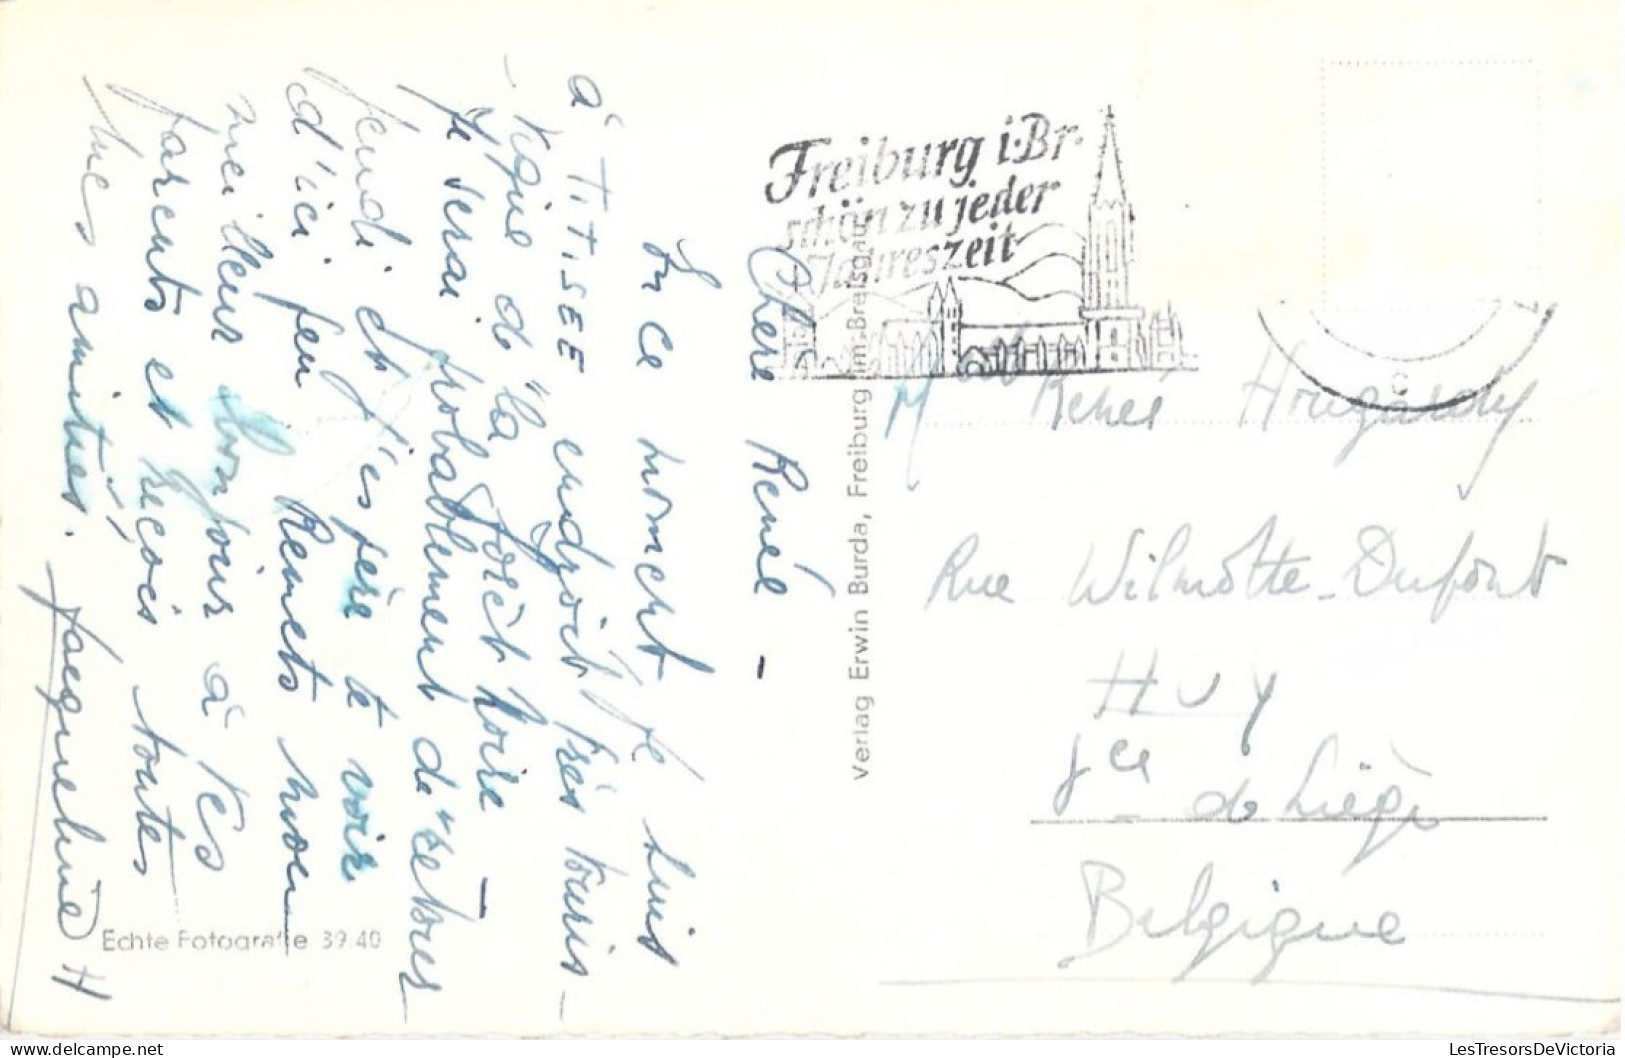 Chère René -
En ce moment je suis
à TITISEE endroit très touris-
-tique de "la Forêt Noire" -
Je serai probablement de retour
jeudi et j'espère te voir
d'ici peu Remets mon
meilleur bonjour à tes
parents et reçois toutes
mes amitiés.
Jacqueline H
Echte Fotografie 39 40
Verlag Erwin Burda, Freiburg im Breisgau
Freiburg i. Br.
schön zu jeder
Jahreszeit
René
Rue Wilmotte-Dufont
HUY
Pce de Liège
Belgique
LesTresorsDeVictoria